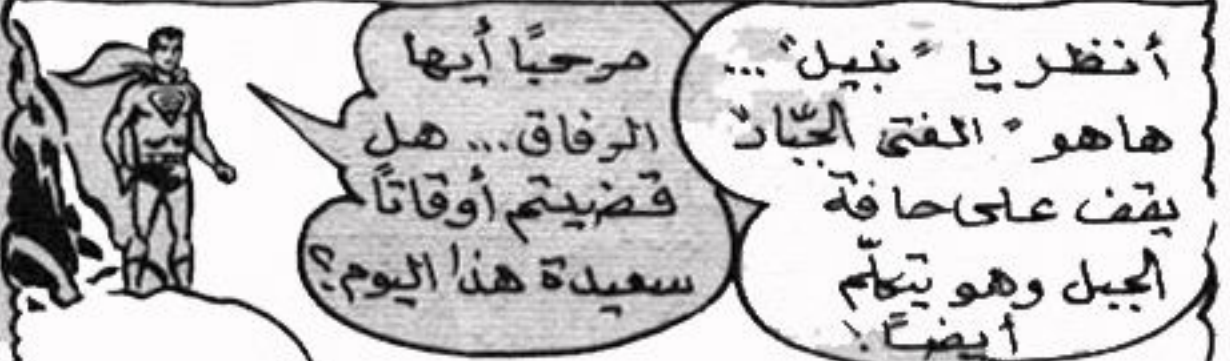 أنظر يا "نبيل"...
هاهو "الفتى الجبّار"
يقف على حافة
الجبل وهو يتكلّم
أيضًا!
مرحبًا أيها
الرفاق... هل
قضيتم أوقاتًا
سعيدة هذا اليوم؟